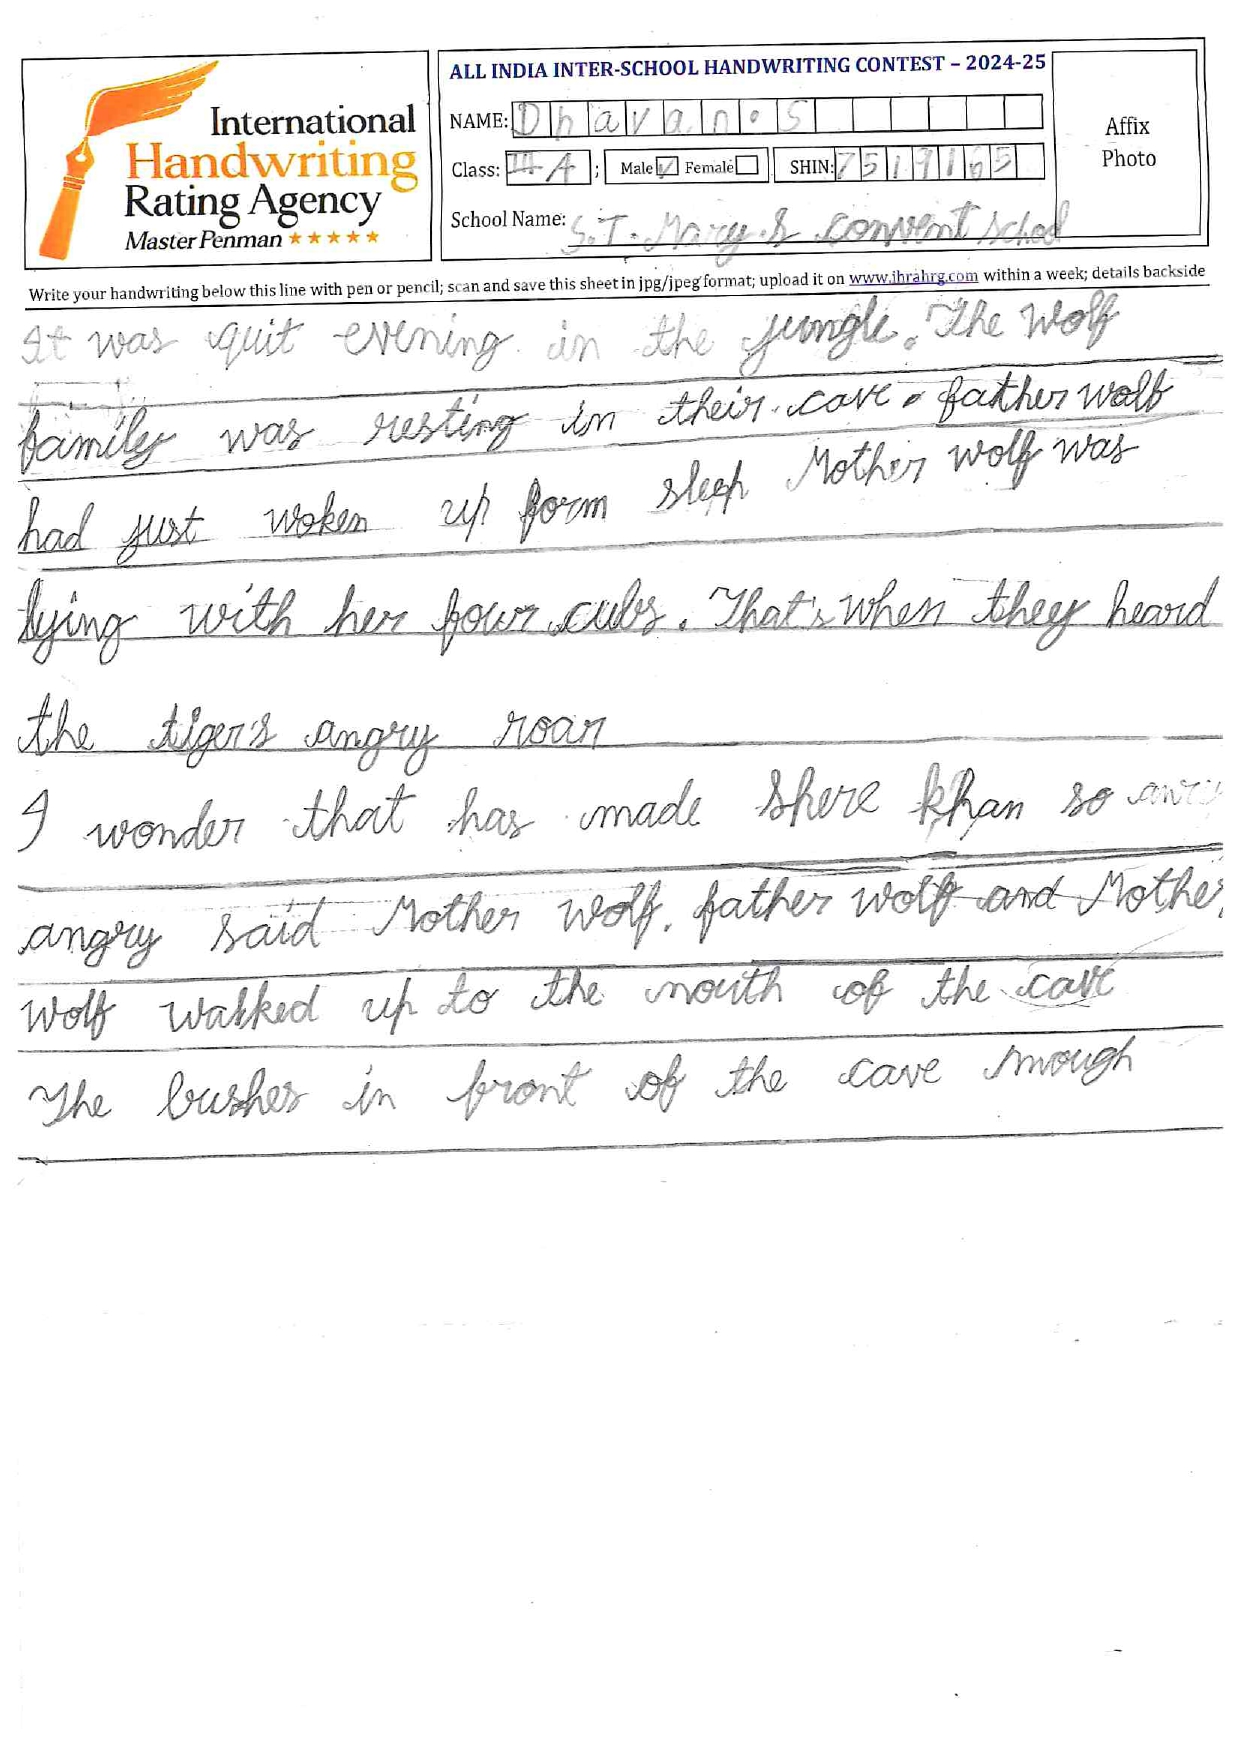 International
Handwriting
Rating Agency
Master Penman
ALL INDIA INTER-SCHOOL HANDWRITING CONTEST – 2024-25
NAME: Dhavan.S
Class: III A ; Male ✓ Female SHIN: 7519165
School Name: S.T. Mary's convent school
Affix
Photo
Write your handwriting below this line with pen or pencil; scan and save this sheet in jpg/jpeg format; upload it on www.ihrahrg.com within a week; details backside
It was quit evening in the jungle. The wolf
family was resting in their cave. father wolf
had just woken up form sleep Mother wolf was
lying with her four cubs. That's when they heard
the tiger's angry roar
I wonder that has made Shere khan so
angry said Mother wolf. father wolf and Mother
wolf walked up to the mouth of the cave
The bushes in front of the cave